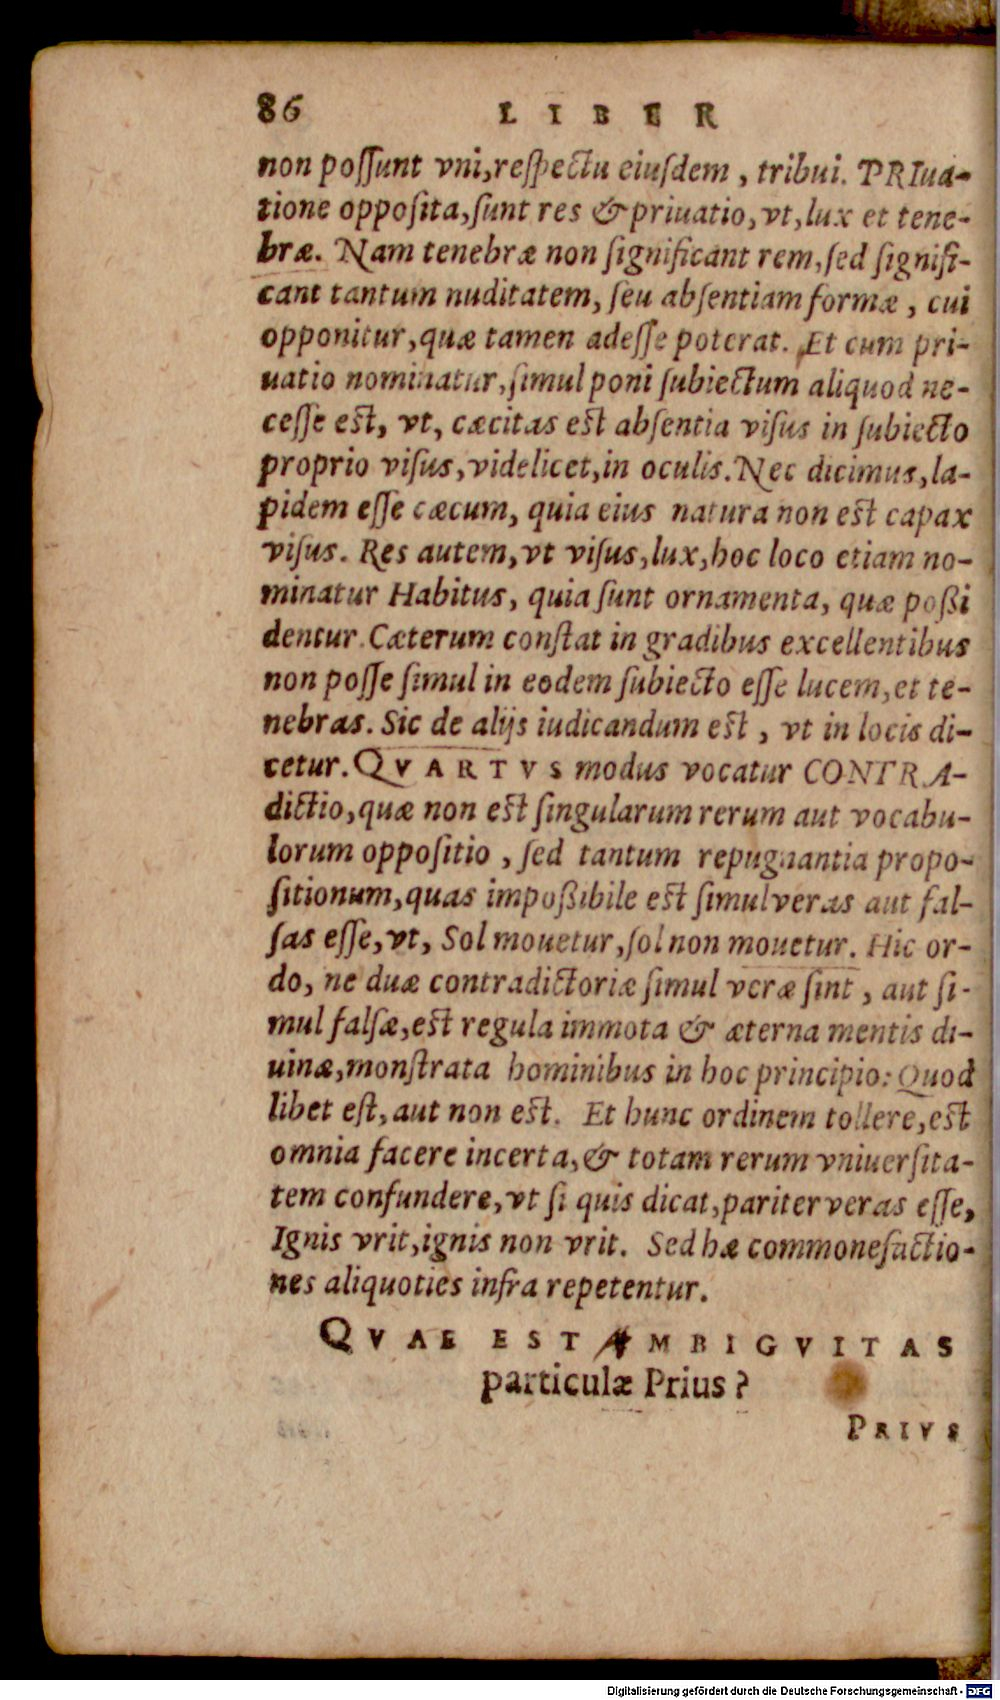 86 LIBER
non poſſunt vni,reſpectu eiuſdem , tribui. PRIua-
tione oppoſita,ſunt res & priuatio, vt, lux et tene-
bræ. Nam tenebræ non ſignificant rem, ſed ſignifi-
cant tantum nuditatem, ſeu abſentiam formæ , cui
opponitur,quæ tamen adeſſe poterat. Et cum pri-
uatio nominatur,ſimul poni ſubiectum aliquod ne-
ceſſe eſt, vt, cæcitas eſt abſentia viſus in ſubiecto
proprio viſus,videlicet,in oculis. Nec dicimus,la-
pidem eſſe cæcum, quia eius natura non eſt capax
viſus. Res autem,vt viſus,lux,hoc loco etiam no-
minatur Habitus, quia ſunt ornamenta, quæ poßi
dentur. Cæterum conſtat in gradibus excellentibus
non poſſe ſimul in eodem ſubiecto eſſe lucem,et te-
nebras. Sic de alijs iudicandum eſt , vt in locis di-
cetur. QVARTVS modus vocatur CONTRA-
dictio,quæ non eſt ſingularum rerum aut vocabu-
lorum oppoſitio , ſed tantum repugnantia propo-
ſitionum,quas impoßibile eſt ſimul veras aut fal-
ſas eſſe,vt, Sol mouetur,ſol non mouetur. Hic or-
do, ne duæ contradictoriæ ſimul veræ ſint , aut ſi-
mul falſæ,eſt regula immota & æterna mentis di-
uinæ,monſtrata hominibus in hoc principio: Quod
libet eſt, aut non eſt. Et hunc ordinem tollere,eſt
omnia facere incerta,& totam rerum vniuerſita-
tem confundere,vt ſi quis dicat,pariter veras eſſe,
Ignis vrit,ignis non vrit. Sed hæ commonefactio-
nes aliquoties infra repetentur.
QVAE EST AMBIGVITAS
particulæ Prius?
PRIVS
Digitalisierung gefördert durch die Deutsche Forschungsgemeinschaft - DFG